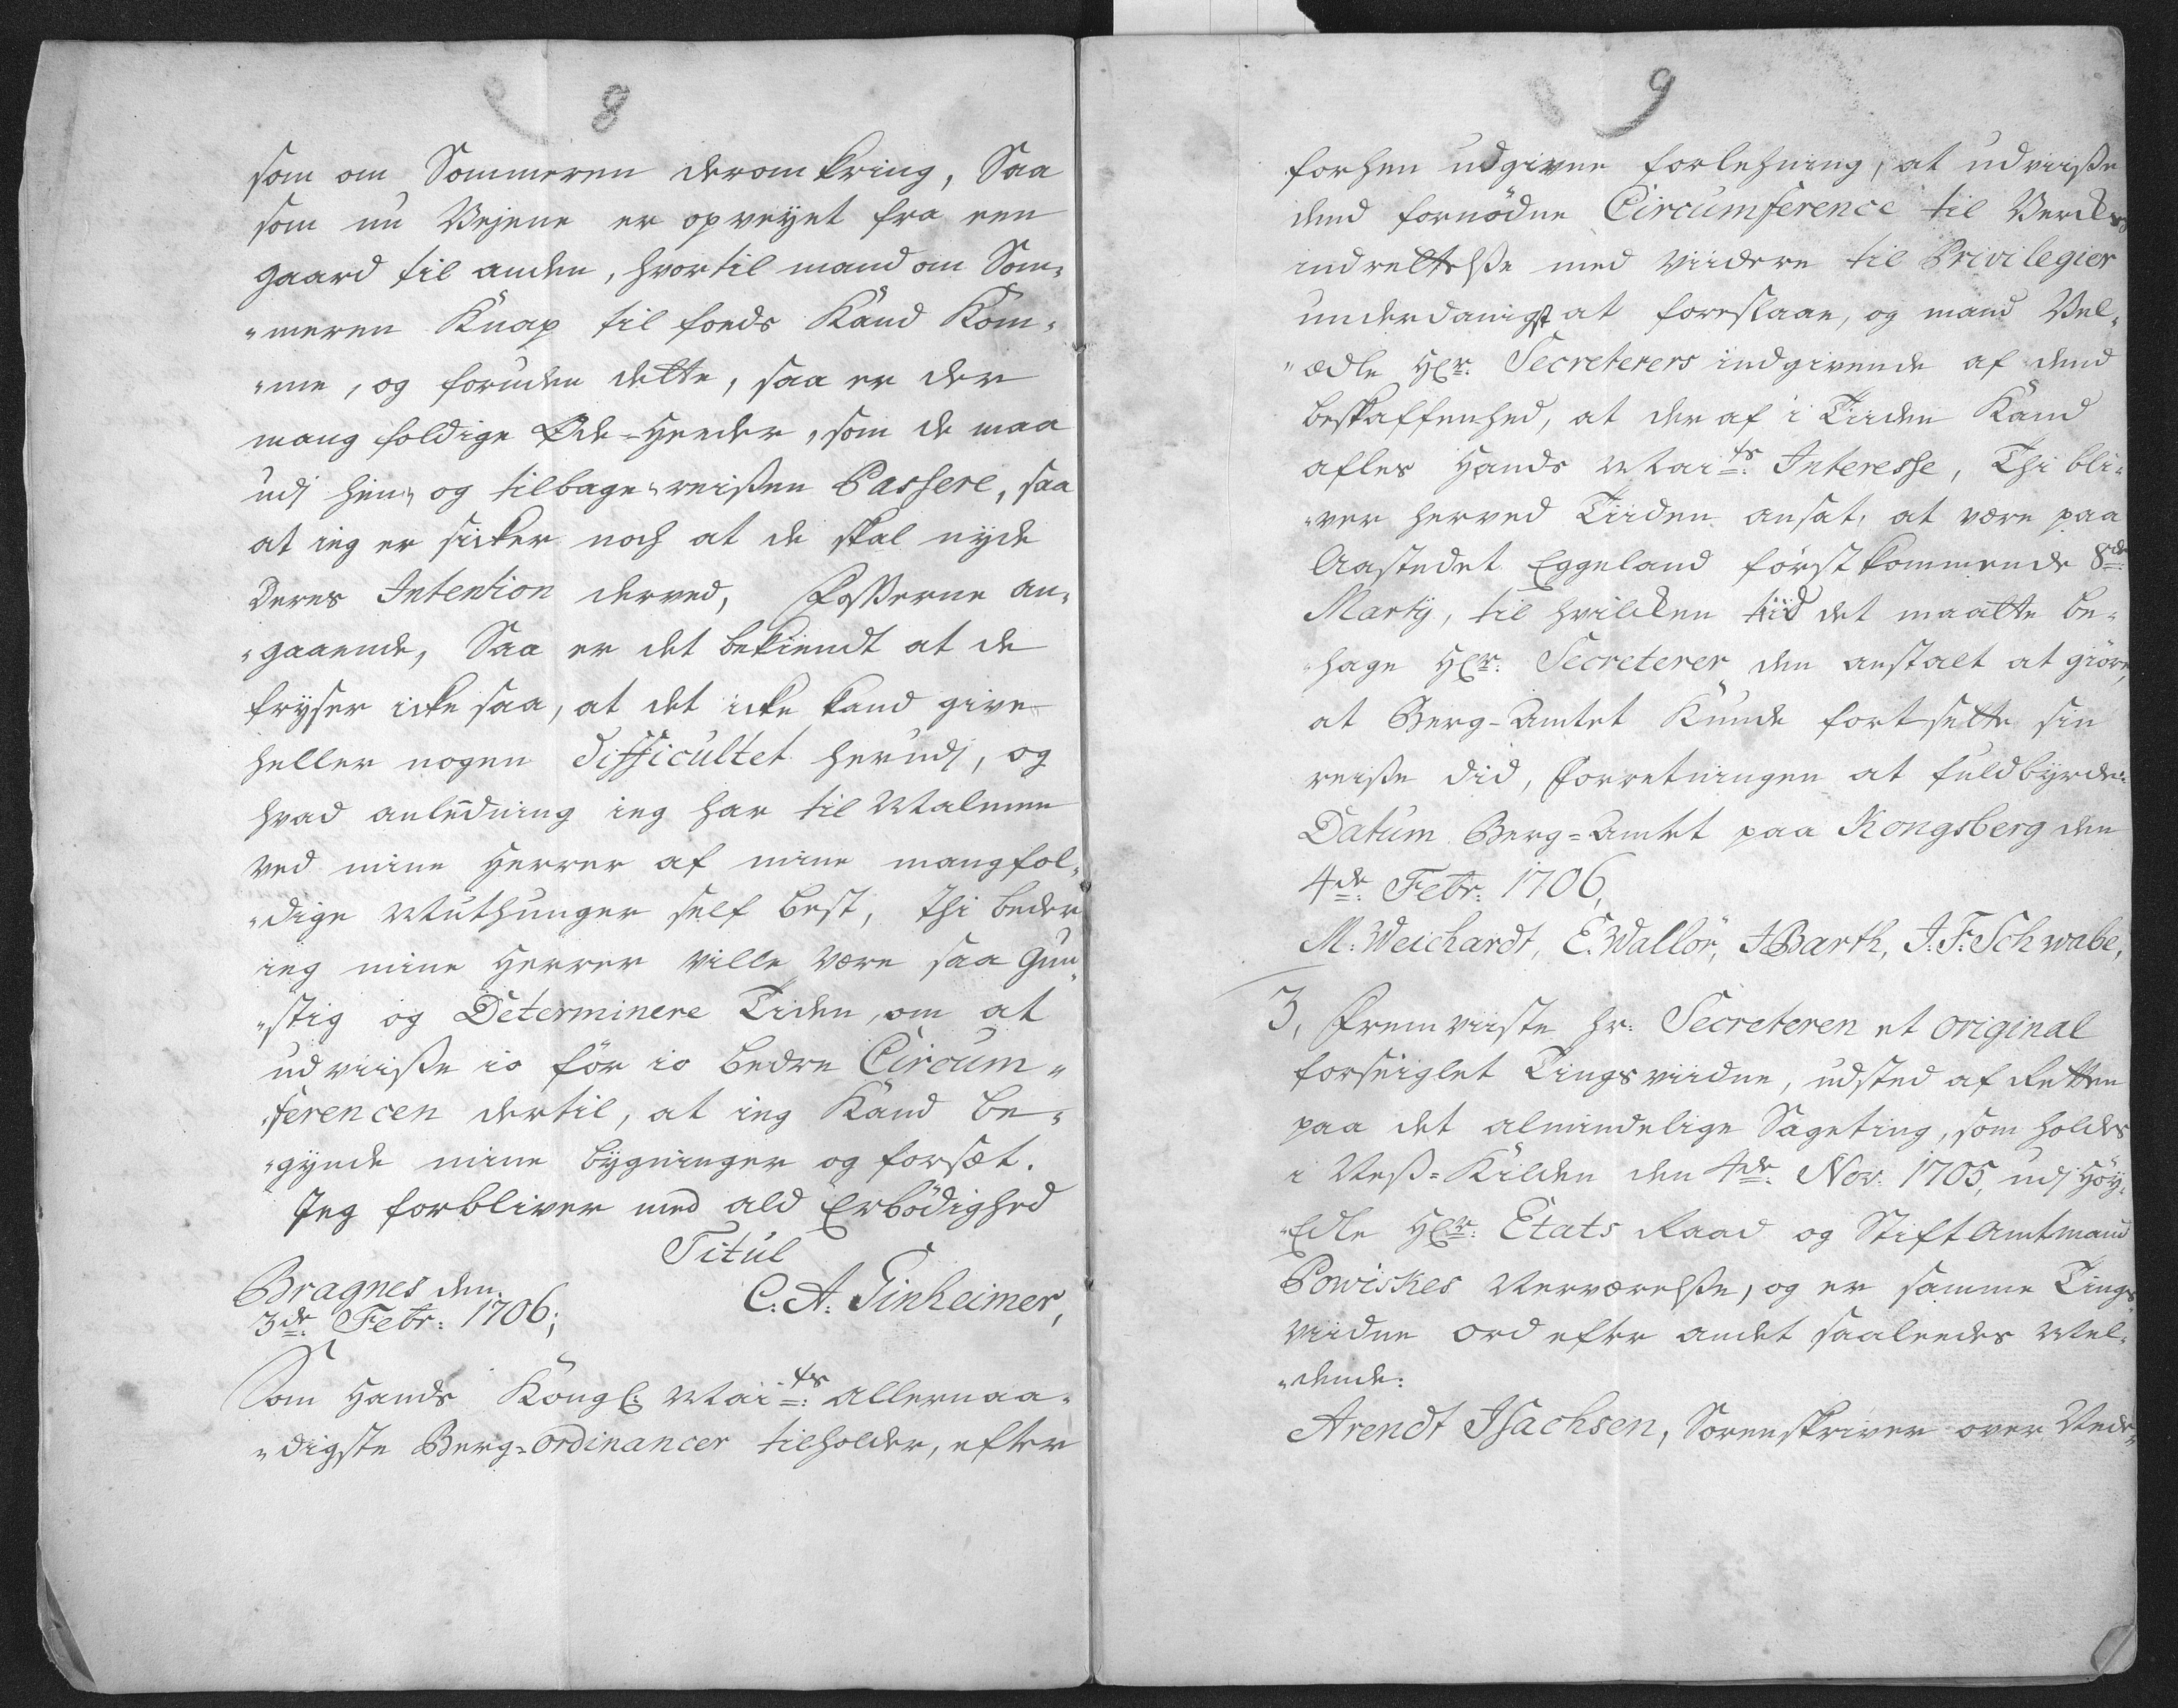 8
som om Sommeren deromkring, Saa
som nu Vejene er opveyet fra een
gaard til anden, hvortil mand om Som-
"meren Knap til foeds Kand Kom-
"me, og foruden dette, saa er der
mangfoldige Øde-Heeder, som de maa
udj hin, og tilbage-reisen Passere, saa
at ieg er sicker noch at de skal nyde
Deres Intention derved, Fosserne an-
"gaaende, Saa er det bekiendt at de
fryser icke saa, at det icke kand give
heller nogen difficultet herudj, og
hvad anledning ieg har til Malmen
ved mine Herrer af mine mangfol-
"dige Muthunger self best, thi beder
ieg mine Herrer ville være saa Gun-
"stig og Determinere Tiden, om at
udviiße io før io bedre Circum-
"ferencen dertil, at ieg Kand be-
"gynde mine bygninger og forsæt.
Jeg forbliver med ald Erbödighed
Titul
Bragnes den
3de Febr: 1706;
C. A. Tinheimer,
Som Hands Kongl: Maits: allernaa-
"digste Berg-Ordinancer tilholder, efter
9
forhen udgivne forlehning, at udviiße
dend fornödne Circumference til Vercks
indrettelse med viidere til Privilegier
underdanigst at foreslaae, og mand Vel-
"ædle Hr: Secreterers indgivende af dend
beskaffenhed, at der af i Tiiden Kand
afles Hands Maits: Interesse, Thi bli-
"ver herved Tiiden ansat, at være paa
Aastedet Eggeland förstkommende 8de
Martij, til hvilcken tiid det maatte be-
"hage Hr: Secreterer den anstalt at giöre,
at Berg-Amtet Kunde fortsette sin
reiße did, Forretningen at fuldbyrde:
Datum Berg-Amtet paa Kongsberg den
4de Febr: 1706,
M: Weichardt, E. Wallör, J Barth, J. F: Schwabe,
3, Fremviiste hr: Secreteren et original
forseiglet Tingsviidne, udsted af Retten
paa det almindelige Sageting, som holdes
i Neß-Kilden den 4de Nov: 1705, udj Höy-
"Edle Hr: Etats Raad og Stift Amtmand
Powiskes Nerværelse, og er samme Tings-
viidne ord efter andet saaleedes Mel-
"dende:
Arendt Isachsen, Sorenskriver over Nede-